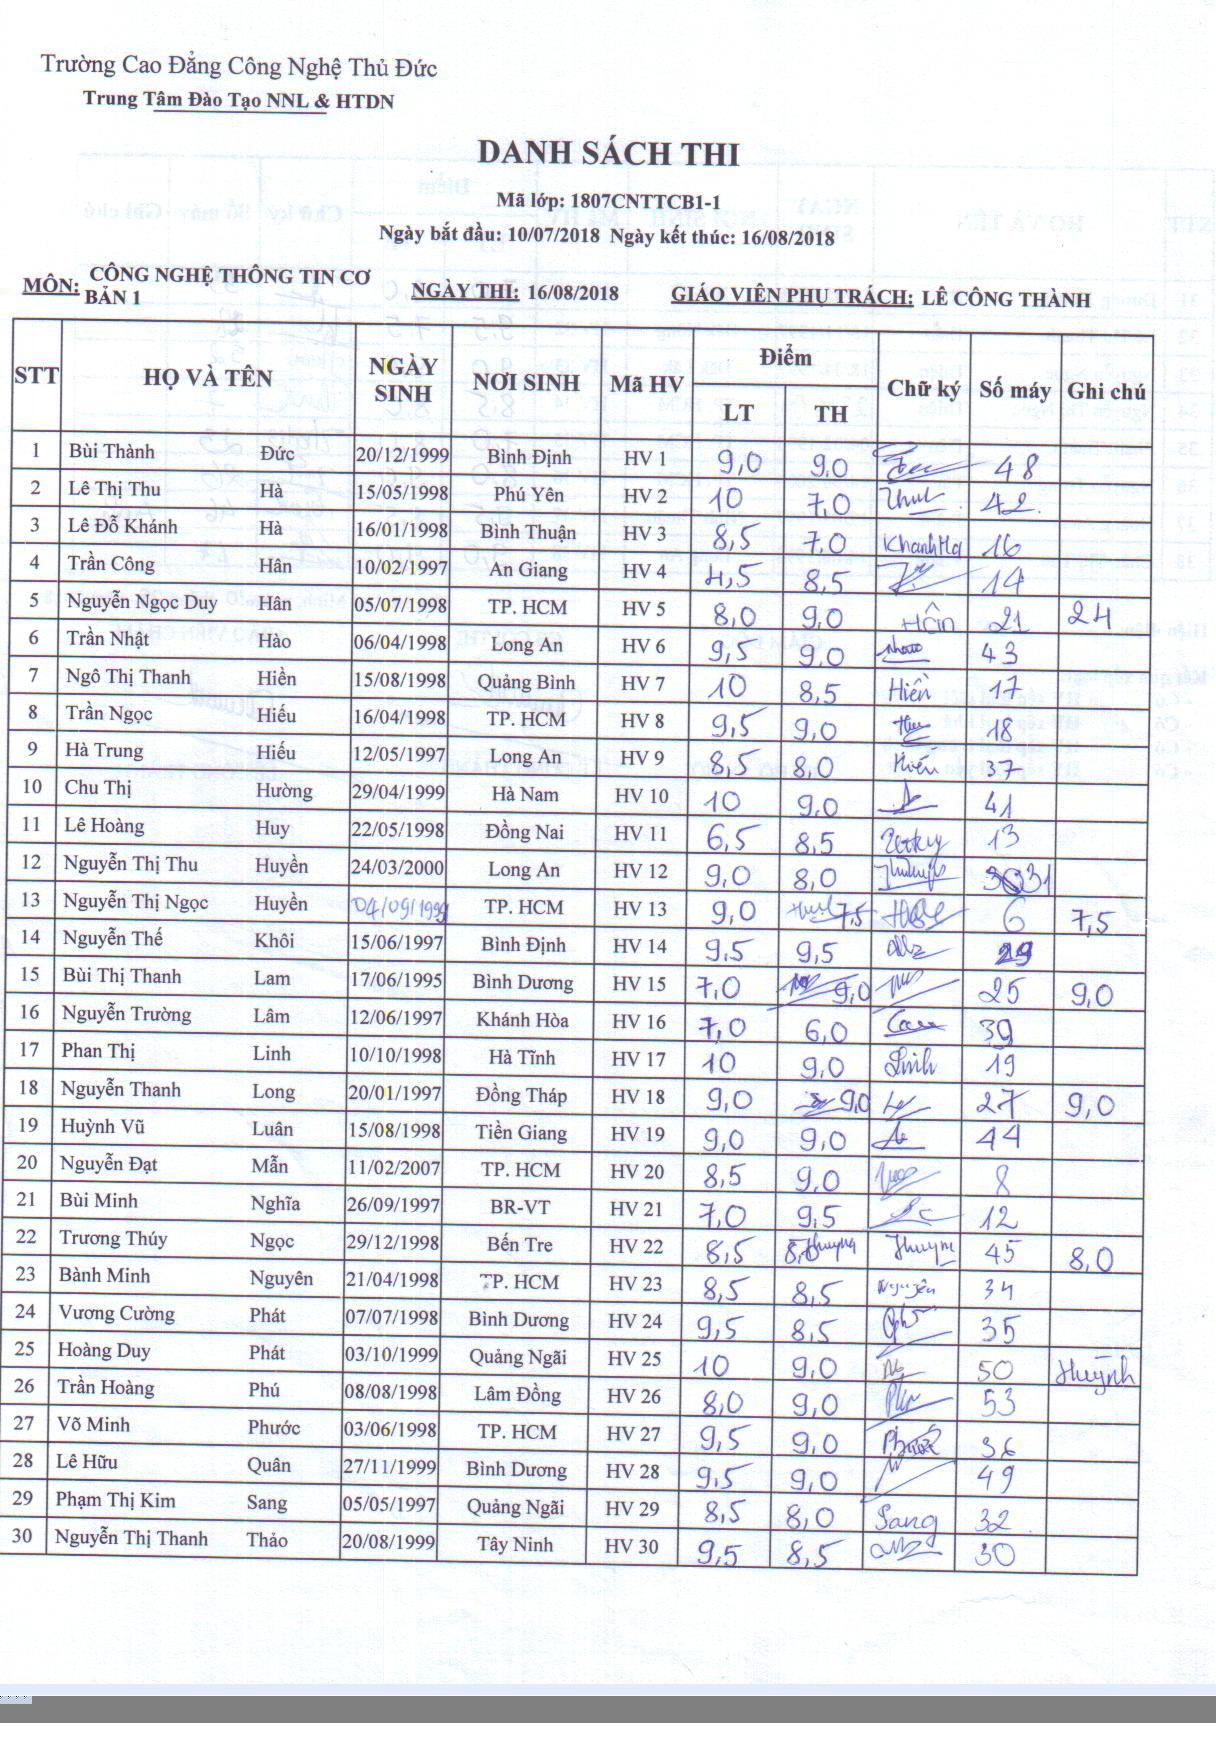 Trường Cao Đẳng Công Nghệ Thủ Đức
Trung Tâm Đào Tạo NNL & HTDN
DANH SÁCH THI
Mã lớp: 1807CNTTCB1-1
Ngày bắt đầu: 10/07/2018 Ngày kết thúc: 16/08/2018
MÔN: CÔNG NGHỆ THÔNG TIN CƠ BẢN 1 NGÀY THI: 16/08/2018 GIÁO VIÊN PHỤ TRÁCH: LÊ CÔNG THÀNH
STT HỌ VÀ TÊN NGÀY SINH NƠI SINH Mã HV Điểm LT TH Chữ ký Số máy Ghi chú
1 Bùi Thành Đức 20/12/1999 Bình Định HV 1 9,0 9,0 48
2 Lê Thị Thu Hà 15/05/1998 Phú Yên HV 2 10 7,0 42
3 Lê Đỗ Khánh Hà 16/01/1998 Bình Thuận HV 3 8,5 7,0 KhanhHa 16
4 Trần Công Hân 10/02/1997 An Giang HV 4 4,5 8,5 14
5 Nguyễn Ngọc Duy Hân 05/07/1998 TP. HCM HV 5 8,0 9,0 Hân 21 24
6 Trần Nhật Hào 06/04/1998 Long An HV 6 9,5 9,0 43
7 Ngô Thị Thanh Hiền 15/08/1998 Quảng Bình HV 7 10 8,5 Hiền 17
8 Trần Ngọc Hiếu 16/04/1998 TP. HCM HV 8 9,5 9,0 18
9 Hà Trung Hiếu 12/05/1997 Long An HV 9 8,5 8,0 Hiếu 37
10 Chu Thị Hường 29/04/1999 Hà Nam HV 10 10 9,0 41
11 Lê Hoàng Huy 22/05/1998 Đồng Nai HV 11 6,5 8,5 13
12 Nguyễn Thị Thu Huyền 24/03/2000 Long An HV 12 9,0 8,0 31
13 Nguyễn Thị Ngọc Huyền 04/09/1999 TP. HCM HV 13 9,0 7,5 6 7,5
14 Nguyễn Thế Khôi 15/06/1997 Bình Định HV 14 9,5 9,5 29
15 Bùi Thị Thanh Lam 17/06/1995 Bình Dương HV 15 7,0 9,0 25 9,0
16 Nguyễn Trường Lâm 12/06/1997 Khánh Hòa HV 16 7,0 6,0 39
17 Phan Thị Linh 10/10/1998 Hà Tĩnh HV 17 10 9,0 Linh 19
18 Nguyễn Thanh Long 20/01/1997 Đồng Tháp HV 18 9,0 9,0 27 9,0
19 Huỳnh Vũ Luân 15/08/1998 Tiền Giang HV 19 9,0 9,0 44
20 Nguyễn Đạt Mẫn 11/02/2007 TP. HCM HV 20 8,5 9,0 8
21 Bùi Minh Nghĩa 26/09/1997 BR-VT HV 21 7,0 9,5 12
22 Trương Thúy Ngọc 29/12/1998 Bến Tre HV 22 8,5 8,0 45 8,0
23 Bành Minh Nguyên 21/04/1998 TP. HCM HV 23 8,5 8,5 Nguyên 34
24 Vương Cường Phát 07/07/1998 Bình Dương HV 24 9,5 8,5 35
25 Hoàng Duy Phát 03/10/1999 Quảng Ngãi HV 25 10 9,0 50 Huỳnh
26 Trần Hoàng Phú 08/08/1998 Lâm Đồng HV 26 8,0 9,0 53
27 Võ Minh Phước 03/06/1998 TP. HCM HV 27 9,5 9,0 Phước 36
28 Lê Hữu Quân 27/11/1999 Bình Dương HV 28 9,5 9,0 49
29 Phạm Thị Kim Sang 05/05/1997 Quảng Ngãi HV 29 8,5 8,0 Sang 32
30 Nguyễn Thị Thanh Thảo 20/08/1999 Tây Ninh HV 30 9,5 8,5 30